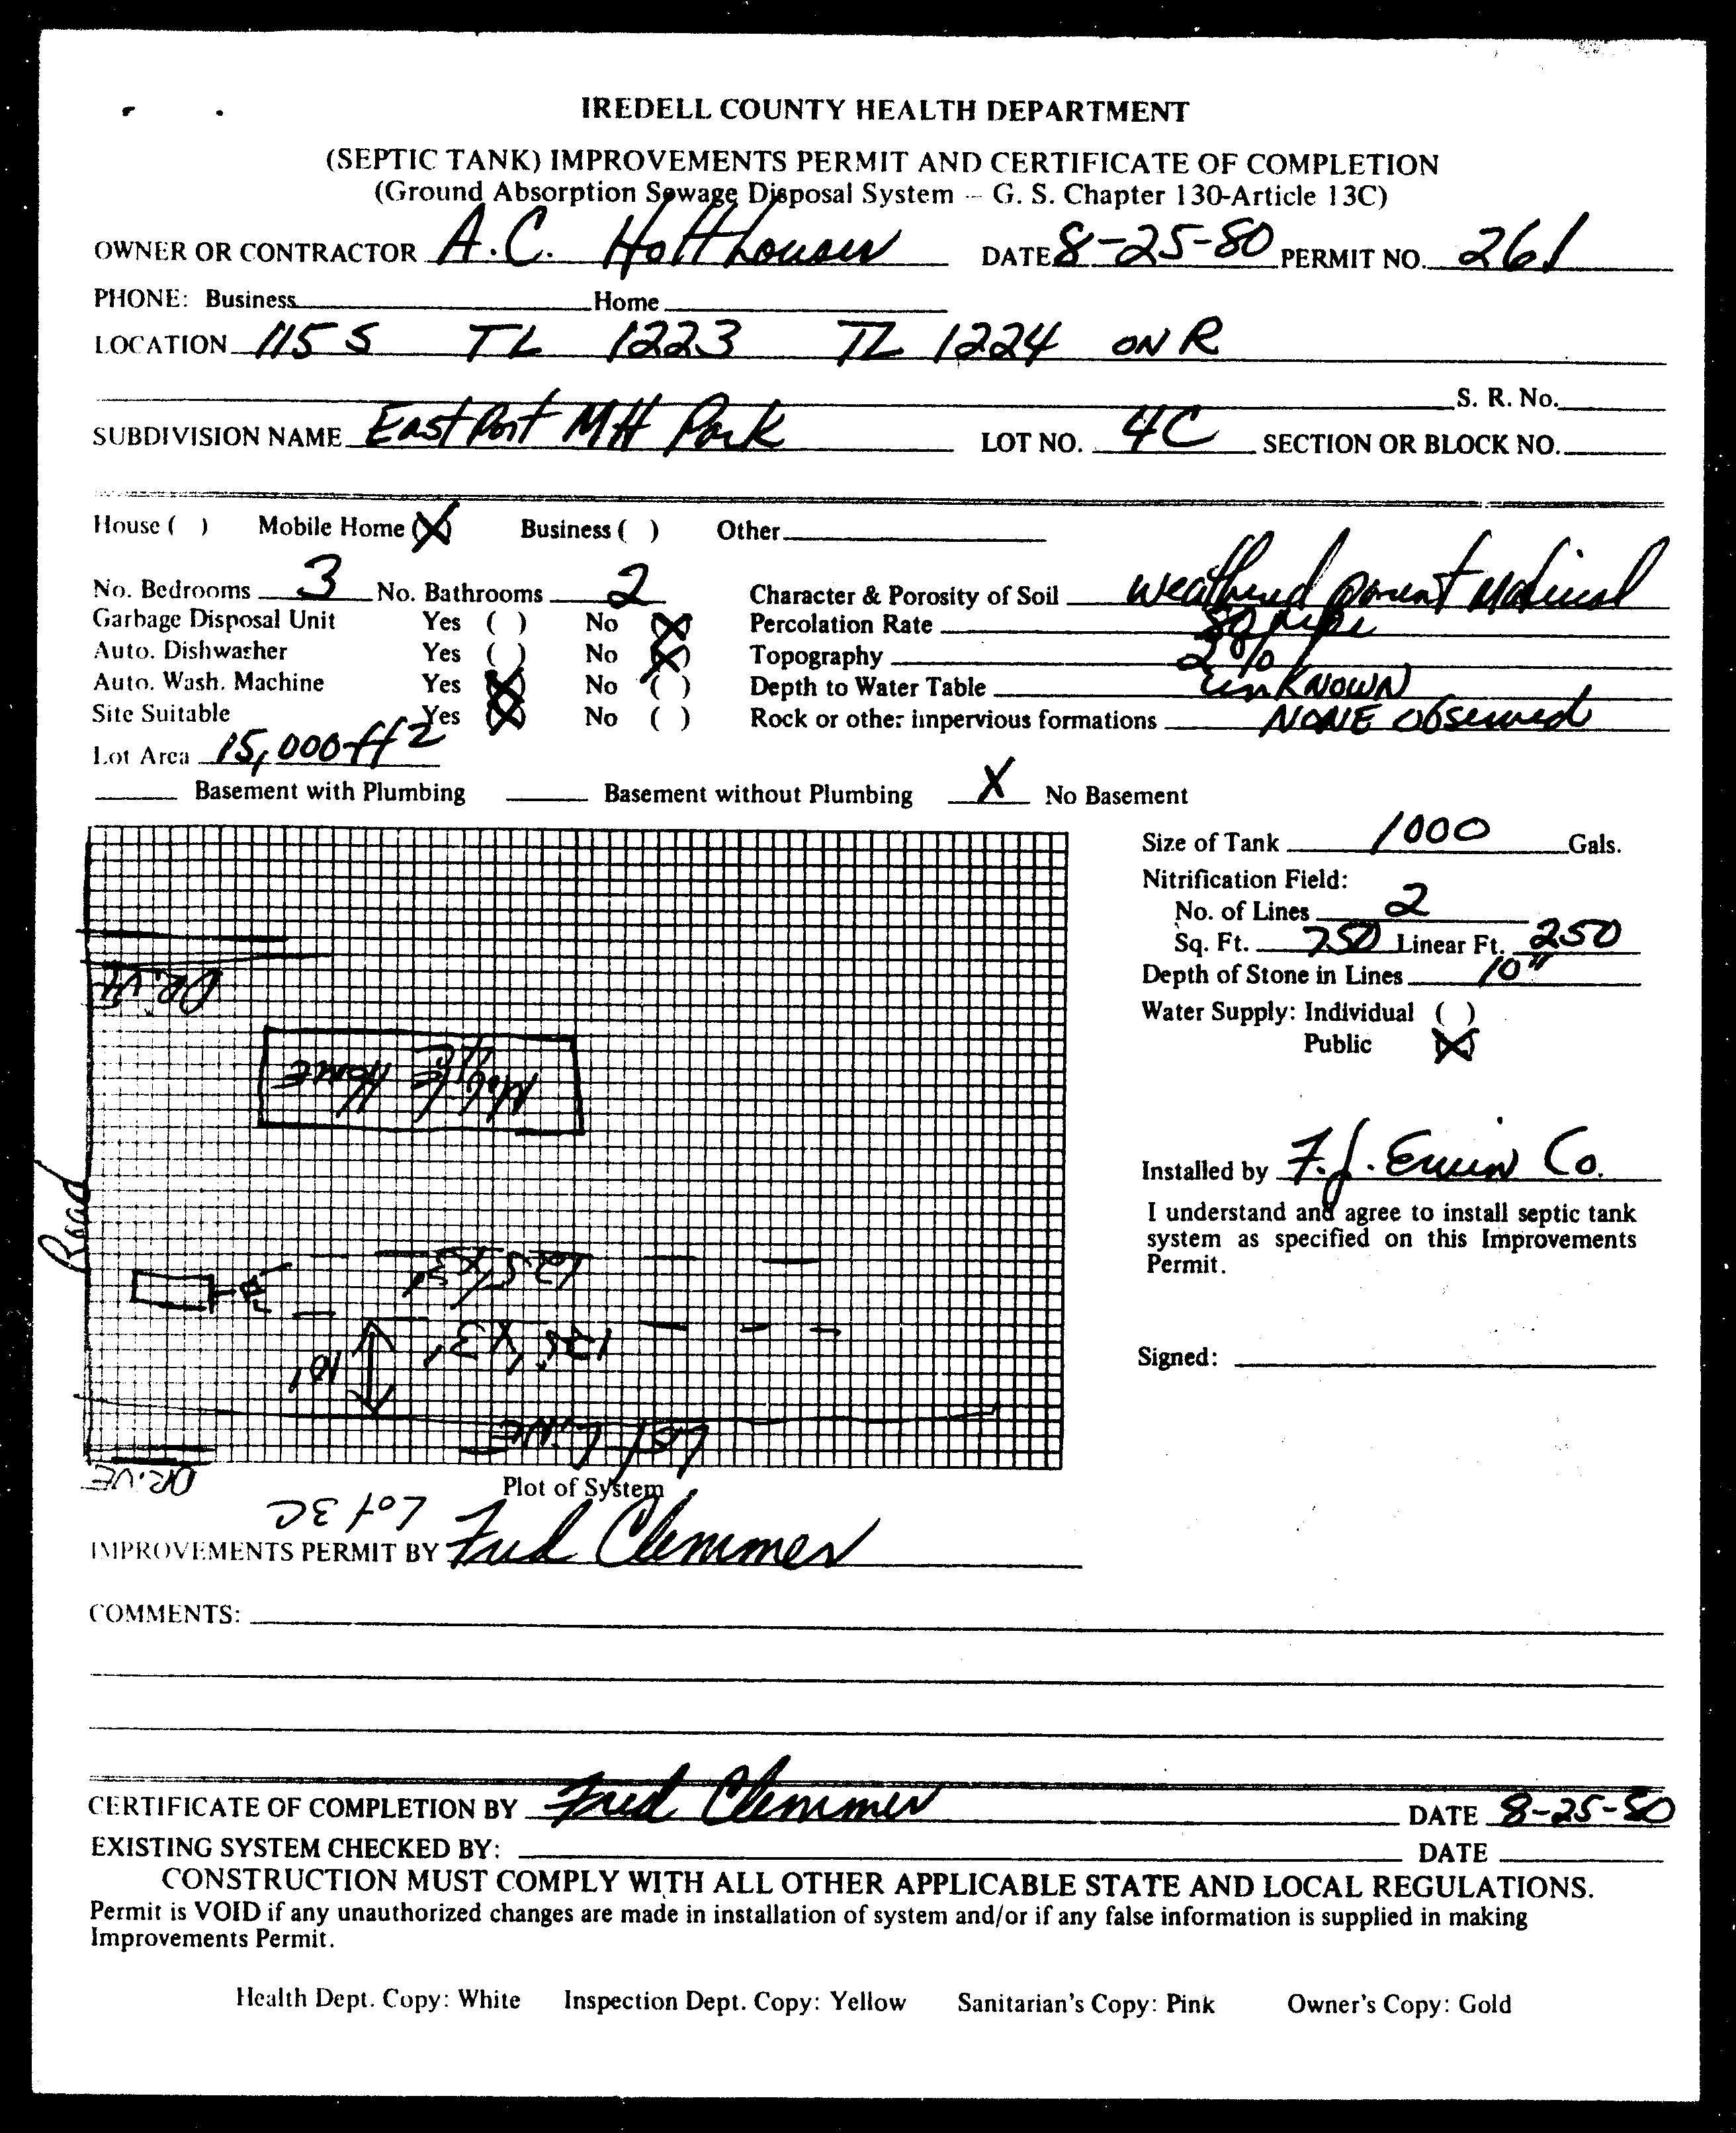 IREDELL COUNTY HEALTH DEPARTMENT
(SEPTIC TANK) IMPROVEMENTS PERMIT AND CERTIFICATE OF COMPLETION
(Ground Absorption Sewage Disposal System -- G. S. Chapter 130-Article 13C)
OWNER OR CONTRACTOR A.C. Holthouser DATE 8-25-80 PERMIT NO. 261
PHONE: Business Home
LOCATION 115 S TL 1223 TL 1224 ON R
S. R. No.
SUBDIVISION NAME East Port MH Park LOT NO. 4C SECTION OR BLOCK NO.
House ( ) Mobile Home (X) Business ( ) Other
No. Bedrooms 3 No. Bathrooms 2 Character & Porosity of Soil weathered parent material
Garbage Disposal Unit Yes ( ) No (X) Percolation Rate
Auto. Dishwasher Yes ( ) No (X) Topography 2%
Auto. Wash. Machine Yes (X) No ( ) Depth to Water Table UNKNOWN
Site Suitable Yes (X) No ( ) Rock or other impervious formations NONE observed
Lot Area 15,000 ft2
Basement with Plumbing Basement without Plumbing X No Basement
Size of Tank 1000 Gals.
Nitrification Field:
No. of Lines 2
Sq. Ft. 750 Linear Ft. 250
Depth of Stone in Lines 10"
Water Supply: Individual ( )
Public (X)
Installed by F.J. Ervin Co.
I understand and agree to install septic tank
system as specified on this Improvements
Permit.
Signed:
DR.W
Mobile Home
Road
125'x3'
125'x3'
10'
Lot LiNE
DRiVE
Plot of System
Lot 3C
IMPROVEMENTS PERMIT BY Fred Clemmer
COMMENTS:
CERTIFICATE OF COMPLETION BY Fred Clemmer DATE 8-25-80
EXISTING SYSTEM CHECKED BY: DATE
CONSTRUCTION MUST COMPLY WITH ALL OTHER APPLICABLE STATE AND LOCAL REGULATIONS.
Permit is VOID if any unauthorized changes are made in installation of system and/or if any false information is supplied in making
Improvements Permit.
Health Dept. Copy: White Inspection Dept. Copy: Yellow Sanitarian's Copy: Pink Owner's Copy: Gold